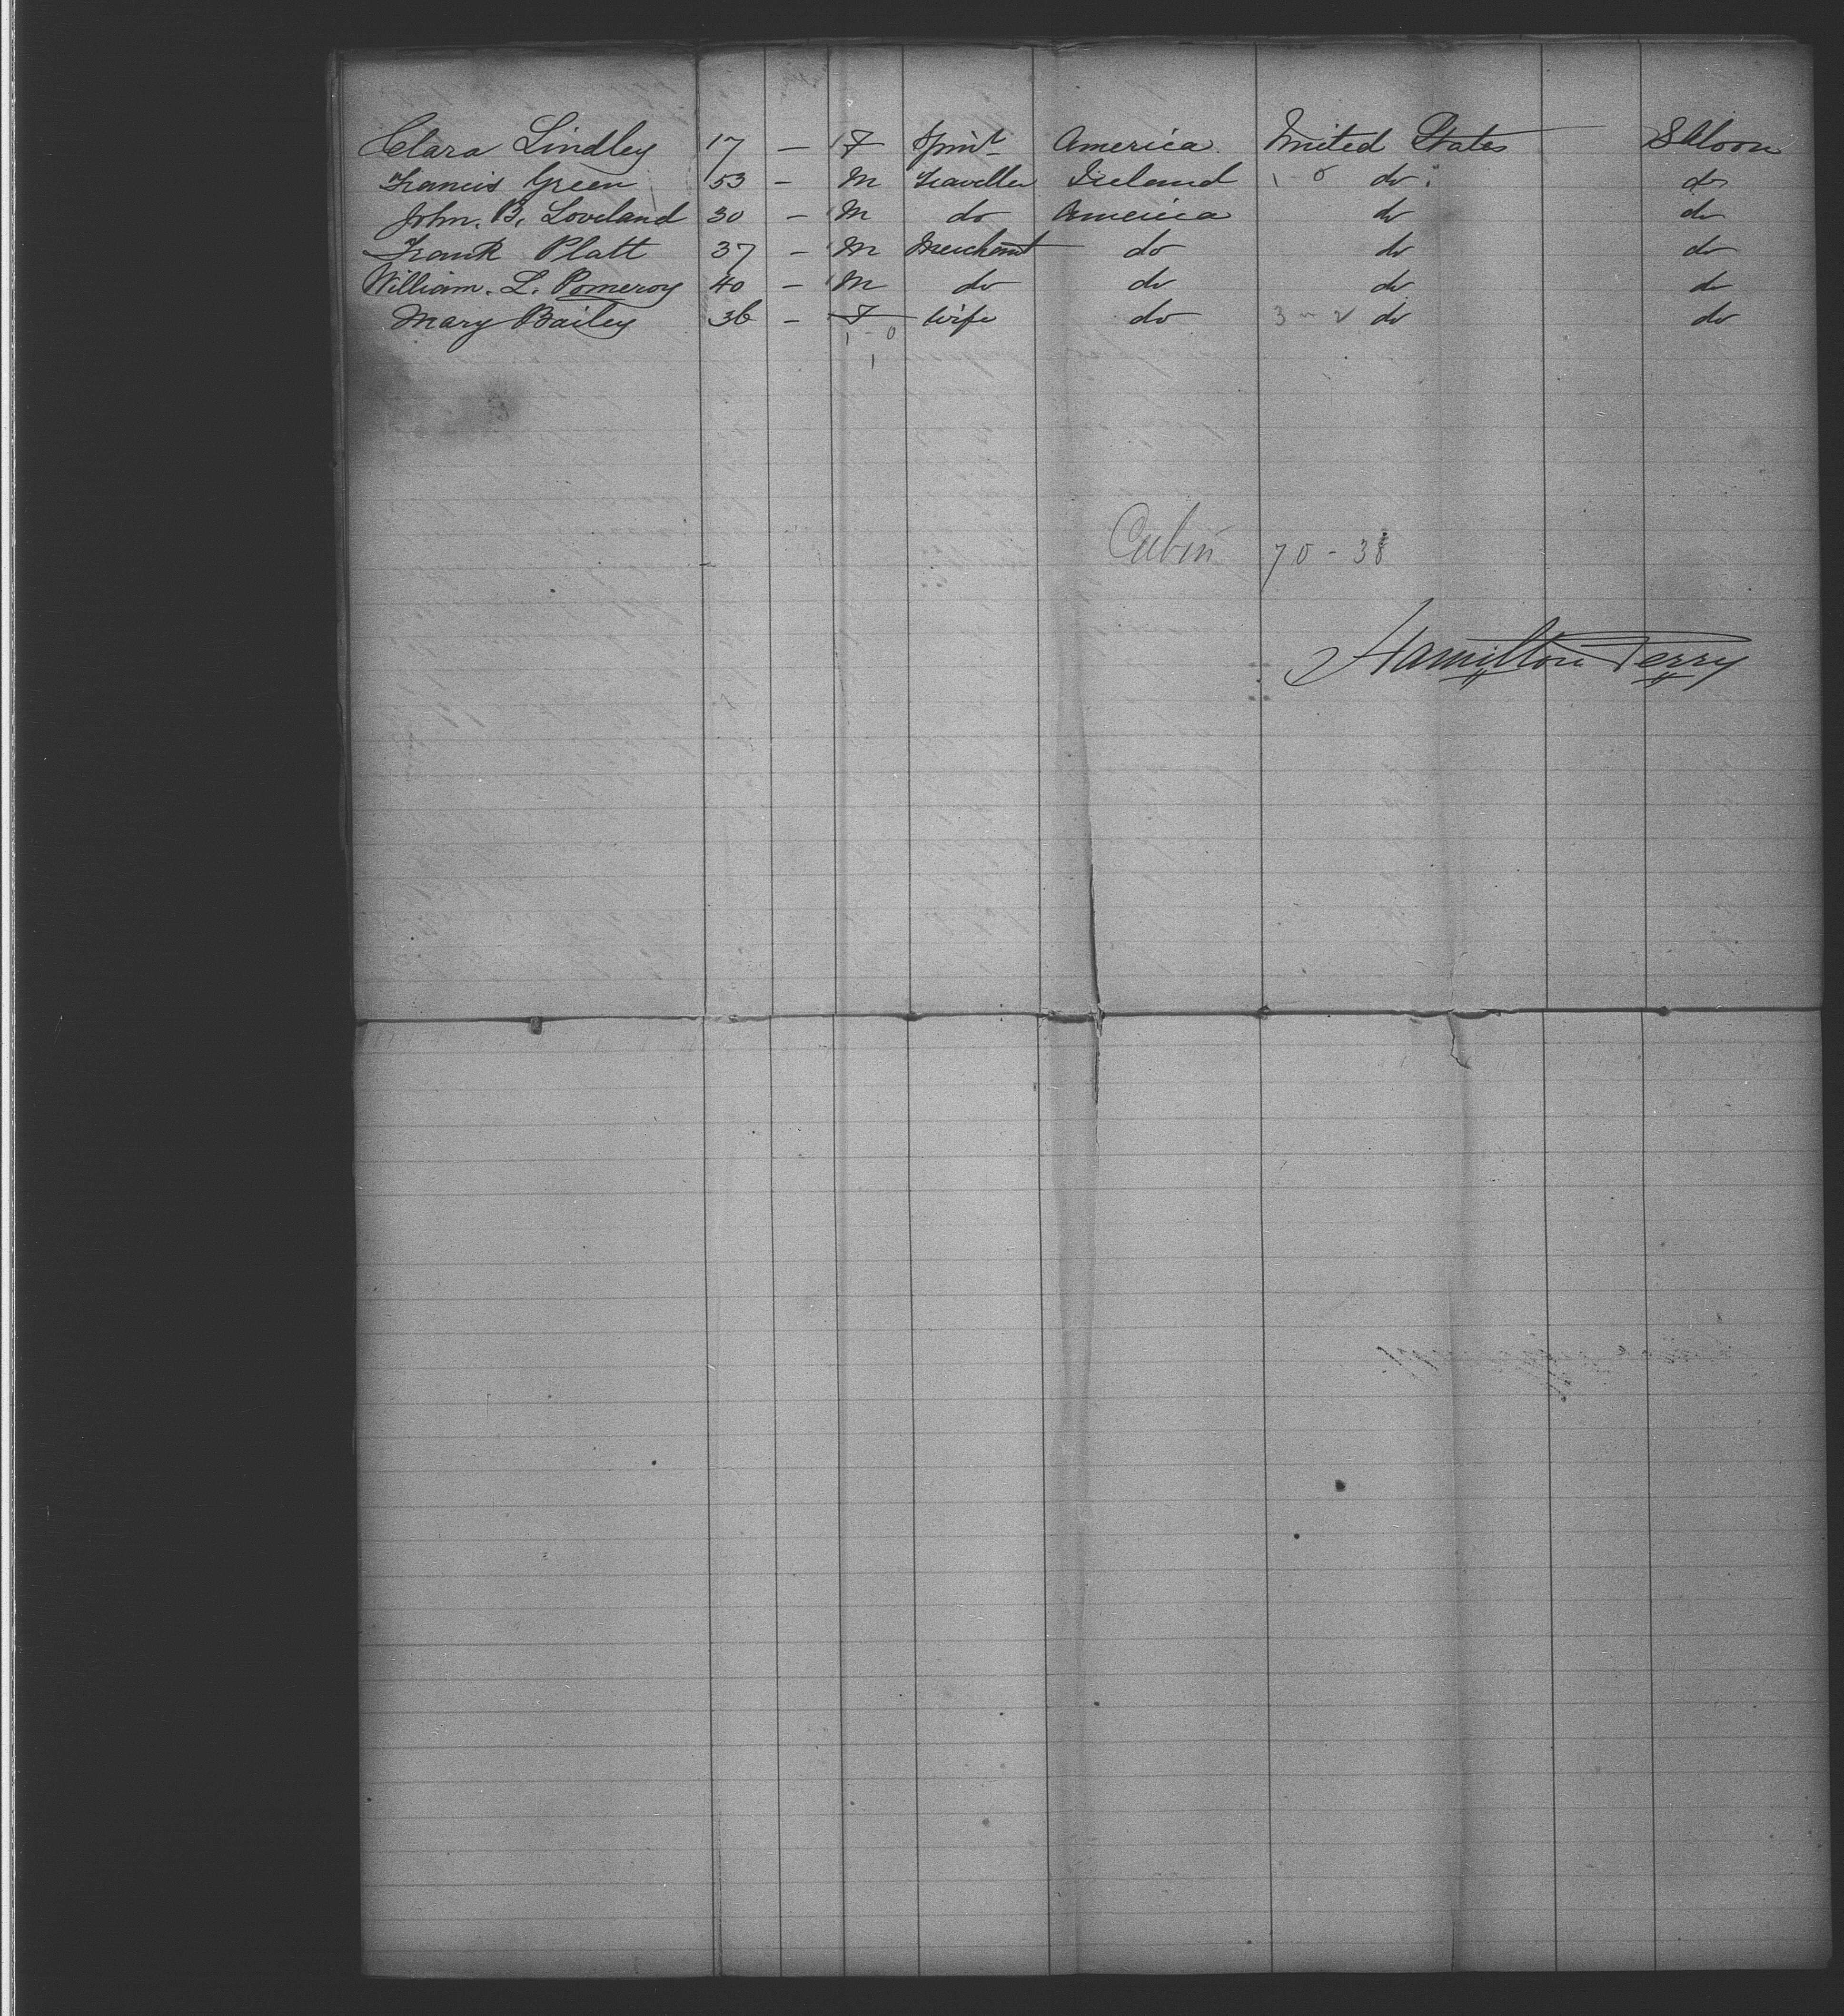 Clara Lindley 17 — F Spinr America United States Saloon
Francis Green 53 — M Traveller Ireland 1-0 do do
John. B. Loveland 30 — M do America do do
Frank Platt 37 — M Merchant do do do
William. L. Pomeroy 40 — M do do do do
Mary Bailey 36 — F Wife do 3 - 2 do do
1 - 0
1
Cabin 70 - 38
Hamilton Perry